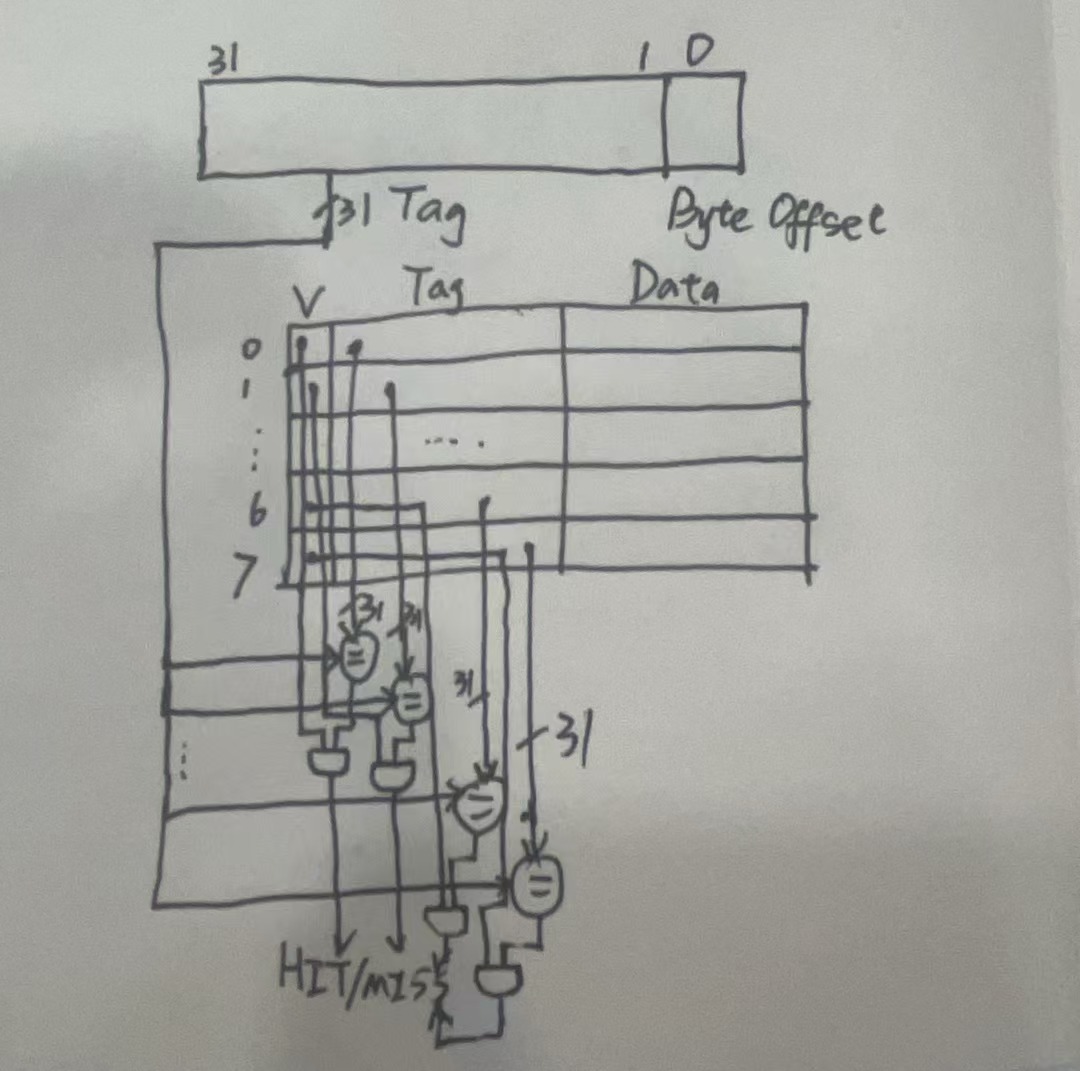 31 1 0
31 Tag
Byte Offset
V Tag Data
0
1
6
7
31 31
=
=
31
31
=
=
HIT/MISS